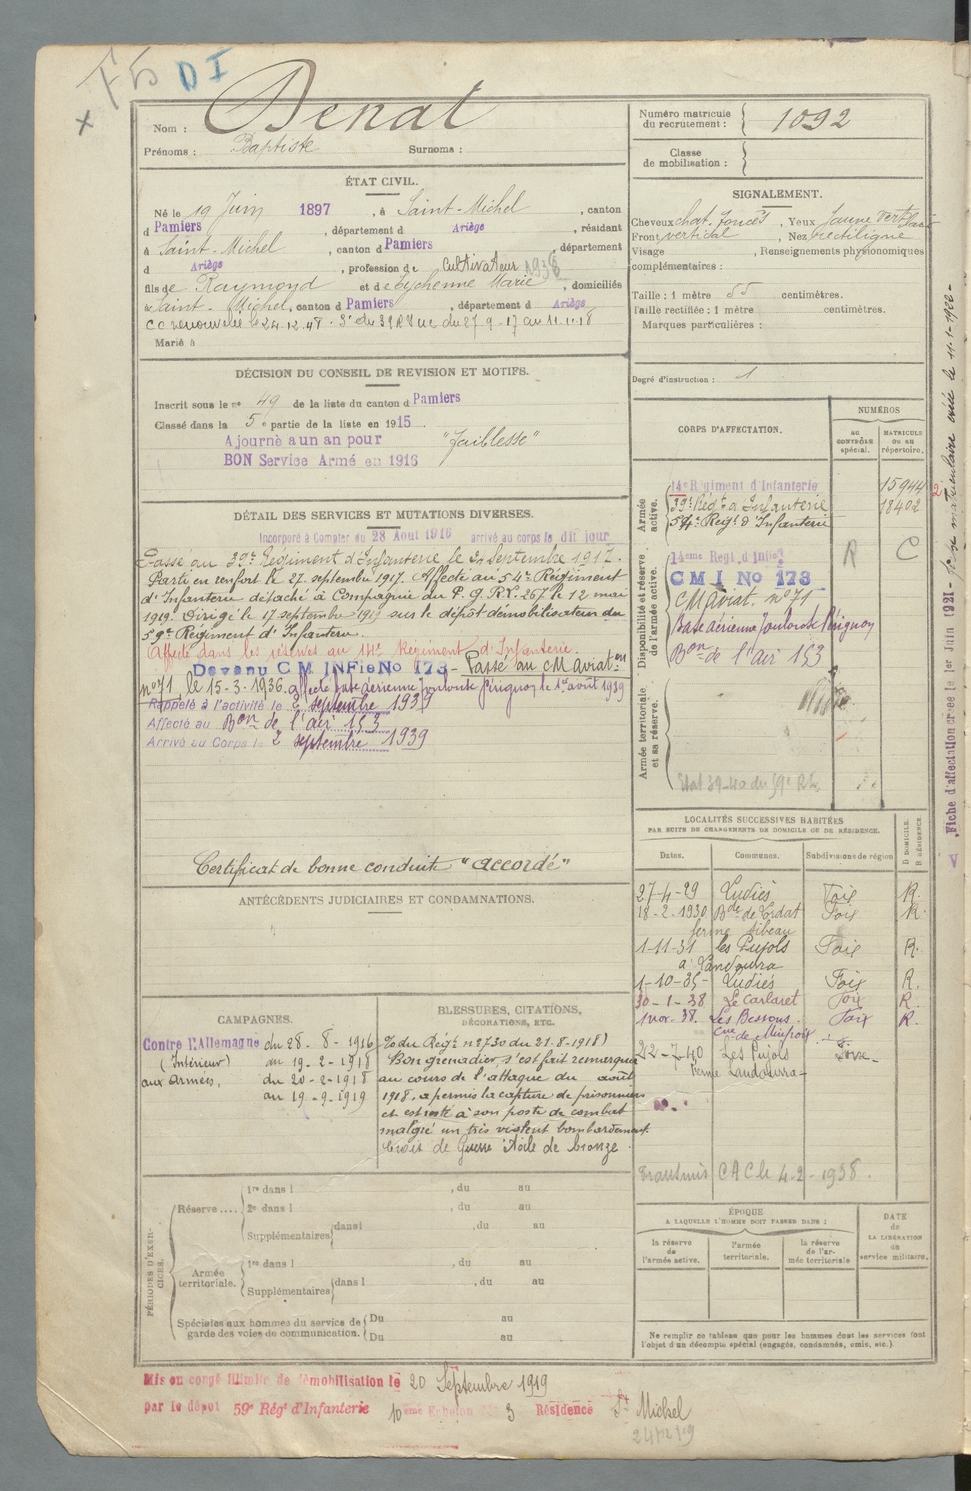 x
D I
Nom : Denat
Prénoms : Baptiste Surnoms :
ÉTAT CIVIL.
Né le 19 Juin 1897, à Saint-Michel, canton
d Pamiers, département d Ariège, résidant
à Saint-Michel, canton d Pamiers, département
d Ariège, profession de Cultivateur
fils de Raymond et de Eychenne Marie, domiciliés
à Saint-Michel, canton d Pamiers, département d Ariège
CC renouvelée le 24.12.48 - Sce du 39 RI UC du 27-9-17 au 11.11.18
Marié à
DÉCISION DU CONSEIL DE REVISION ET MOTIFS.
Inscrit sous le no 49 de la liste du canton d Pamiers
Classé dans la 5 e partie de la liste en 1915
Ajourné a un an pour "Faiblesse"
BON Service Armé en 1916
DÉTAIL DES SERVICES ET MUTATIONS DIVERSES.
Incorporé à Compter du 28 Aout 1916 arrivé au corps le dit jour
Passé au 39e Régiment d'Infanterie le 21 Septembre 1917.
Parti en renfort le 27 septembre 1917. Affecté au 54e Régiment
d'Infanterie détaché à Compagnie du P. G. R.V. 267 le 12 mai
1919. Dirigé le 17 septembre 1919 sur le dépôt démobilisateur du
59e Régiment d'Infanterie.
Affecté dans les réserves au 14e Régiment d'Infanterie.
Devenu C M INFie No 173 - Passé au CM aviaton
no 71, le 15-3-1936. affecté Base aérienne Toulouse Pérignon le 1er août 1939
Rappelé à l'activité le 2 septembre 1939
Affecté au Bon de l'air 153
Arrivé au Corps le 2 septembre 1939
Certificat de bonne conduite "accordé"
ANTÉCÉDENTS JUDICIAIRES ET CONDAMNATIONS.
CAMPAGNES.
Contre l'Allemagne du 28-8-1916
(Intérieur) au 19-2-1918
aux Armées, du 20-2-1918
au 19-9-1919
BLESSURES, CITATIONS,
DÉCORATIONS, ETC.
du Régt no 2730 du 21-8-1918)
Bon grenadier, s'est fait remarquer
au cours de l'attaque du août
1918. a permis la capture de prisonniers
et est resté à son poste de combat
malgré un très violent bombardement.
Croix de Guerre Etoile de bronze
PÉRIODES D'EXERCICES.
Réserve .... 1re dans l , du au
2e dans l , du au
Supplémentaires dans l , du au
Armée territoriale. 1re dans l , du au
Supplémentaires dans l , du au
Spéciales aux hommes du service de garde des voies de communication. Du au
Du au
Mis en congé illimité de démobilisation le 20 Septembre 1919
par le dépôt 59e Régt d'Infanterie 10eme Echelon No 3 Résidence St Michel
Numéro matricule du recrutement : 1092
Classe de mobilisation :
SIGNALEMENT.
Cheveux chat. foncés, Yeux jaune vert
Front vertical, Nez rectiligne
Visage , Renseignements physionomiques
complémentaires :
Taille : 1 mètre 55 centimètres.
Taille rectifiée : 1 mètre centimètres.
Marques particulières :
Degré d'instruction : 1
CORPS D'AFFECTATION.
NUMÉROS
AU CONTRÔLE spécial.
MATRICULE OU AU RÉPERTOIRE.
Armée active.
14e Régiment d'Infanterie 15944
39e Régt d'Infanterie 18402
54e Regt d'Infanterie
Disponibilité et réserve de l'armée active.
14eme Regt d'Infie R C
C M I No 173
CM Aviat. no 71
Base aérienne Toulouse Pérignon
Bon de l'air 153
Armée territoriale et sa réserve.
Etat 39-40 du 59e R.I.
LOCALITÉS SUCCESSIVES HABITÉES
PAR SUITE DE CHANGEMENTS DE DOMICILE OU DE RÉSIDENCE.
Dates. Communes. Subdivisions de région D DOMICILE. R RÉSIDENCE.
27-4-29 Ludiès Foix R.
18-2-1930 Foix R.
1-11-31 les Pujols Foix R.
1-10-35 Ludiès Foix R.
30-1-38 Le Carlaret Foix R.
1 nov. 38. Les Bessous. Foix R.
Cne de Mirepoix
22-7-40 Les Pujols
Transmis CAC le 4-2-1938.
ÉPOQUE
A LAQUELLE L'HOMME DOIT PASSER DANS :
la réserve de l'armée active.
l'armée territoriale.
la réserve de l'armée territoriale
DATE de LA LIBÉRATION du service militaire.
Ne remplir ce tableau que pour les hommes dont les services font
l'objet d'un décompte spécial (engagés, condamnés, omis, etc.).
V Fiche d'affectation créée le 1er Juin 1921 - fiche matriculaire créée le 11-1-1922 -